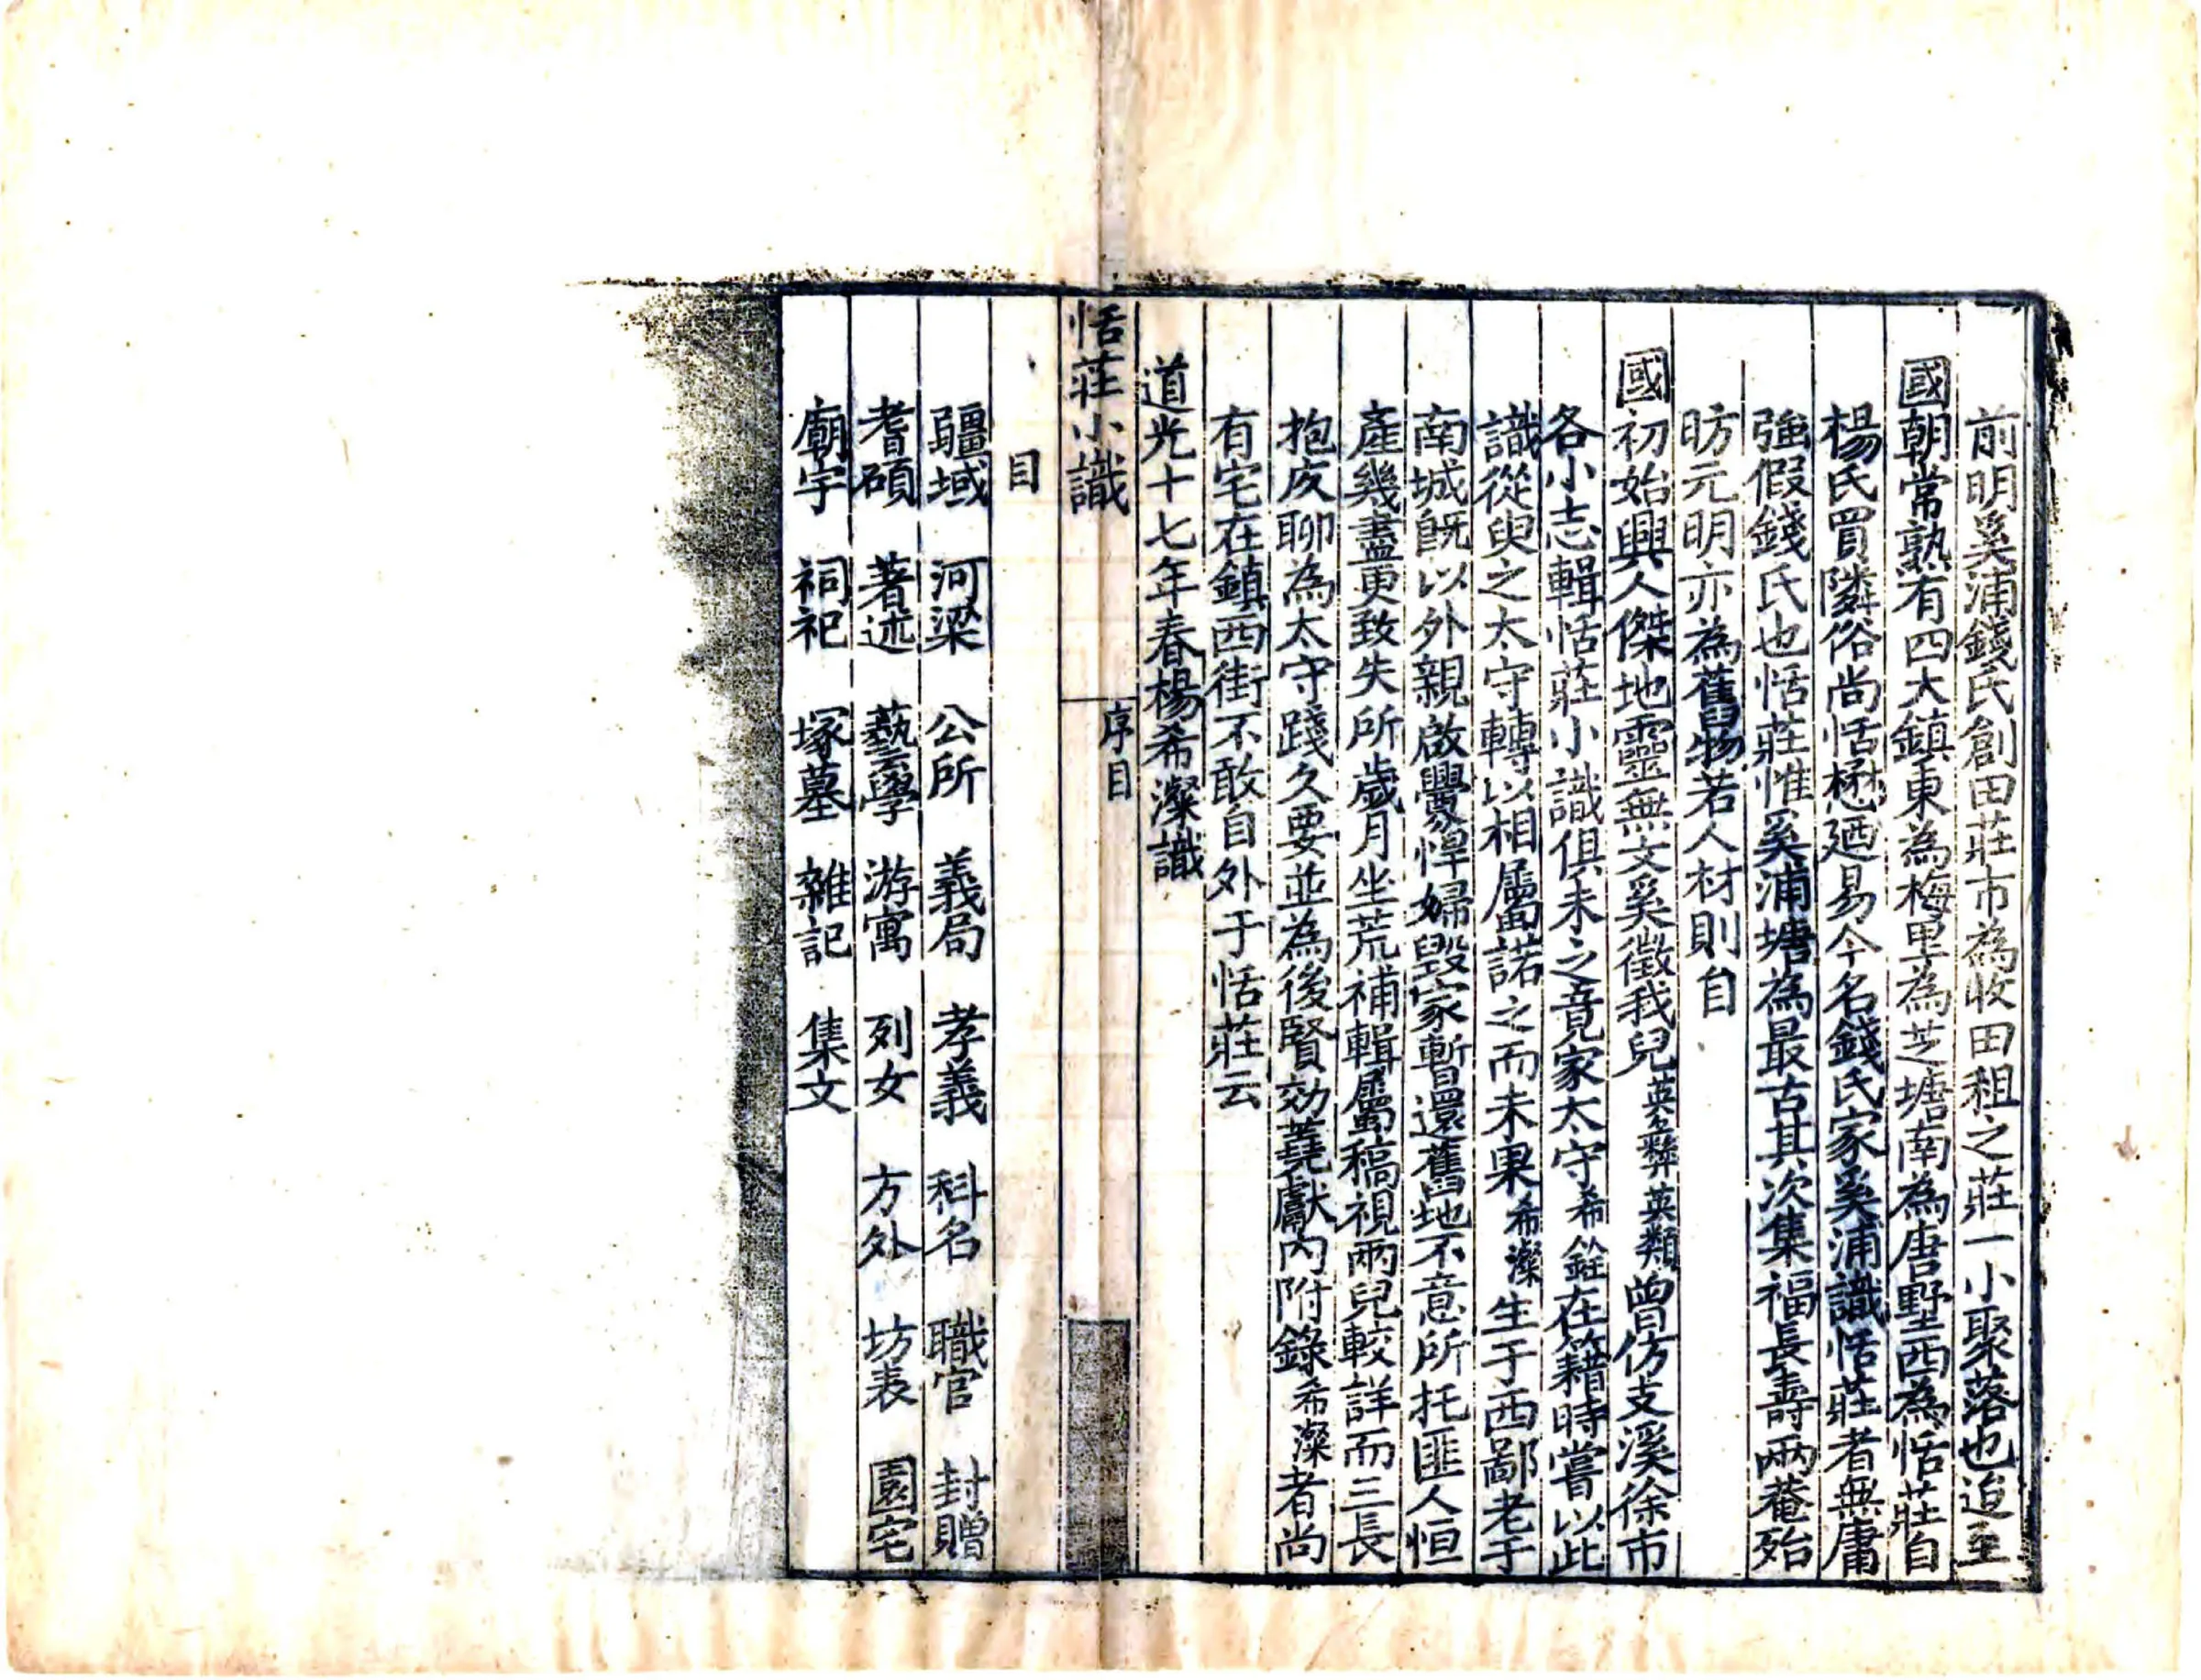 前明奚浦錢氏創田莊市為收田租之莊一小聚落也迨至
國朝常熟有四大鎮東為梅里為芝塘南為唐墅西為恬莊自
楊氏買隣俗尚恬懋廼易今名錢氏家奚浦識恬莊者無庸
強假錢氏也恬莊惟奚浦塘為最古其次集福長壽兩菴殆
昉元明亦為舊物若人材則自
國初始興人傑地靈無文奚徵我兒英彝英類曾仿支溪徐市
各小志輯恬莊小識俱未之竟家太守希銓在籍時嘗以此
識從臾之太守轉以相屬諾之而未果希濼生于西鄙老于
南城既以外親啟釁悍婦毀家暫還舊地不意所托匪人恒
產幾盡更致失所歲月坐荒補輯屬稿視兩兒較詳而三長
抱疚聊為太守踐久要並為後賢効蕘獻內附錄希濼者尚
有宅在鎮西街不敢自外于恬莊云
道光十七年春楊希濼識
恬莊小識
序目
目
疆域 河梁 公所 義局 孝義 科名 職官 封贈
耆碩 著述 藝學 游寓 列女 方外 坊表 園宅
廟宇 祠祀 塚墓 雜記 集文